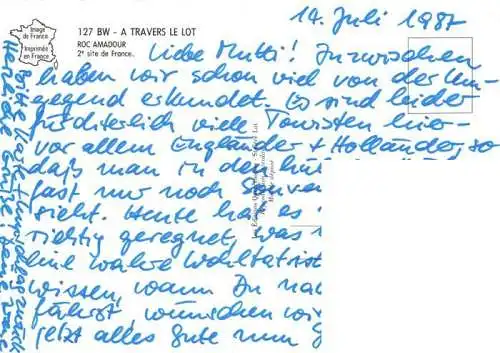 Image
de France
Imprimée
en France
127 BW - A TRAVERS LE LOT
ROC AMADOUR
2e site de France.
14. Juli 1987
Liebe Mutti! Inzwischen
haben wir schon viel von der Um-
gegend erkundet. Es sind leider
fürchterlich viele Touristen hier -
vor allem Engländer + Holländer, so
daß man in den
fast nur noch
sieht. Heute hat es
richtig geregnet, was
eine wahre Wohltat ist
wissen, wann Du
fährst, wünschen wir
jetzt alles Gute nun
Bitte Karte + Umschlag zurück
Herzliche Grüße! Deine